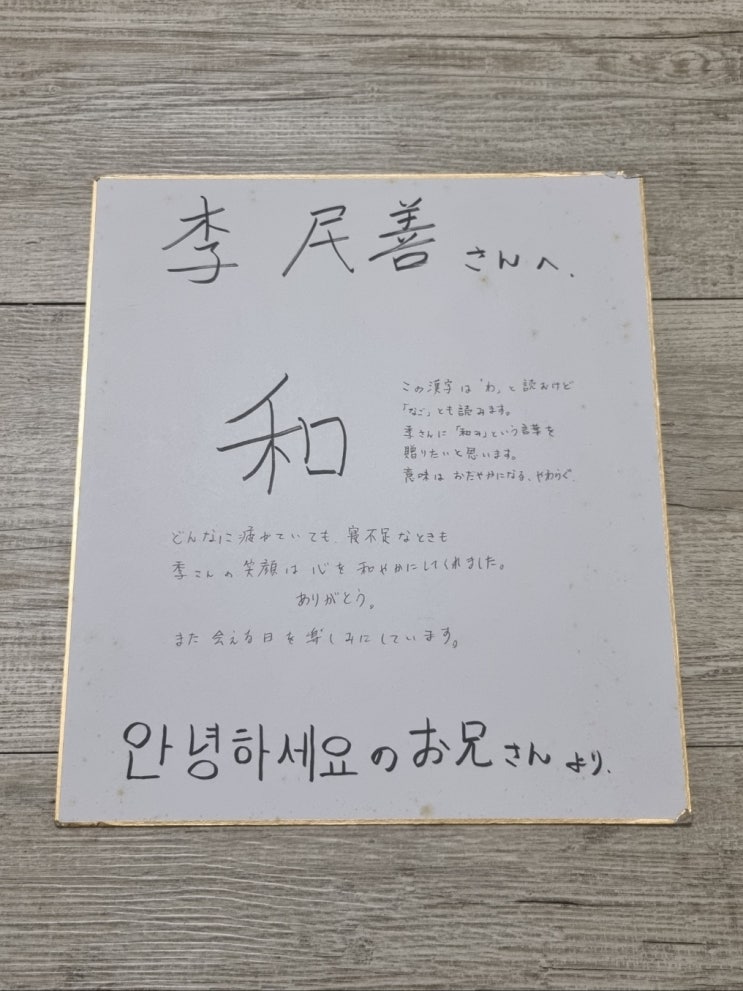 李 民善 さんへ.
和
この漢字は「わ」と読むけど
「なご」とも読みます。
李さんに「和み」という言葉を
贈りたいと思います。
意味はおだやかになる、やわらぐ.
どんなに疲れていても、寝不足なときも
李さんの笑顔は心を和やかにしてくれました。
ありがとう。
また会える日を楽しみにしています。
안녕하세요のお兄さんより.